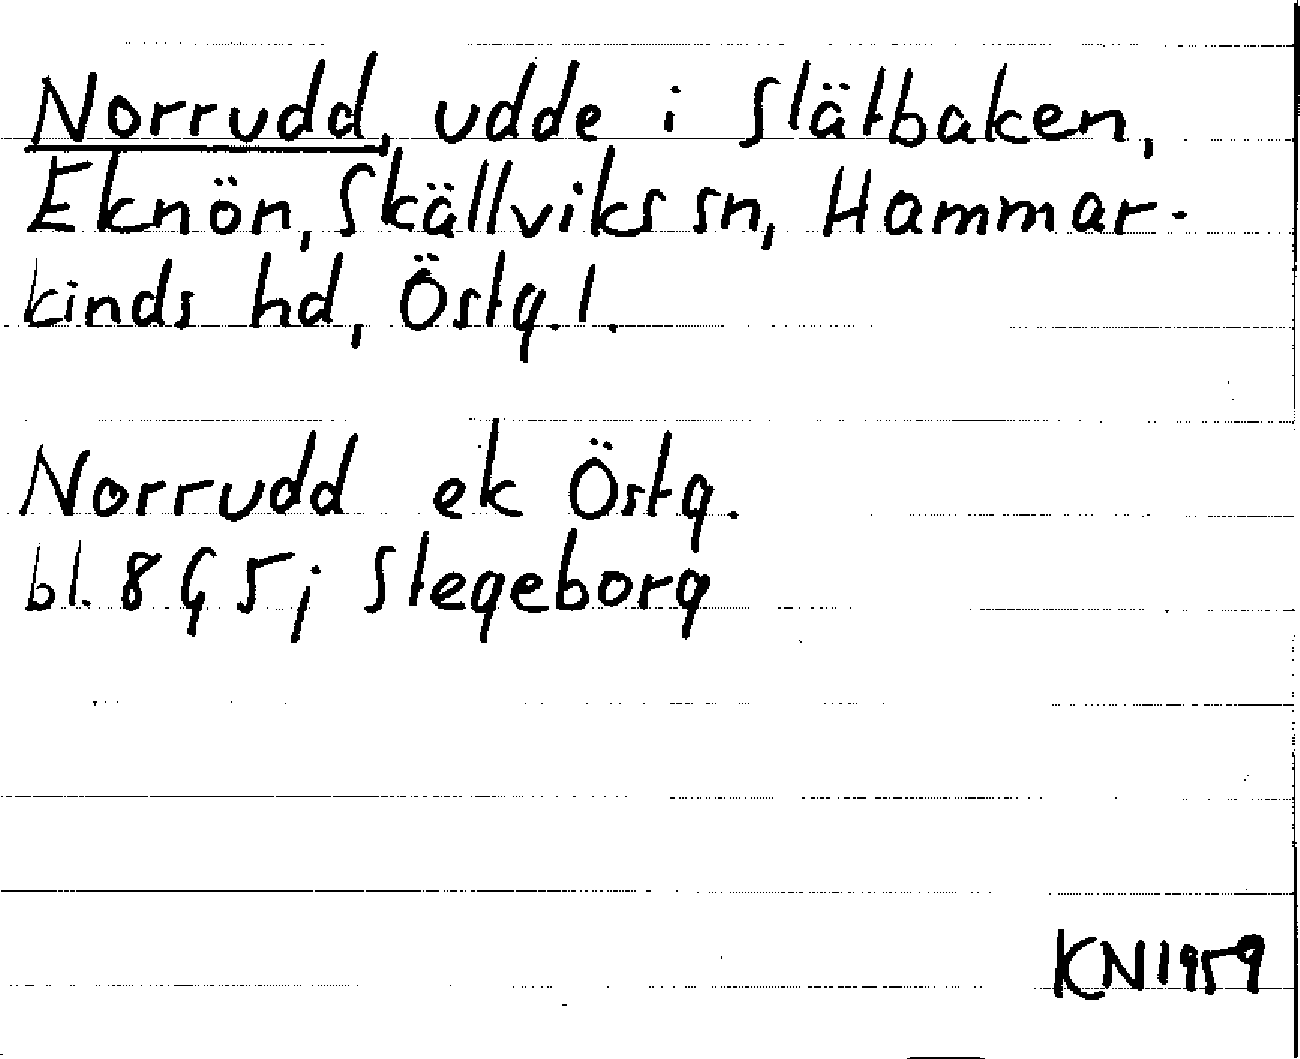 Norrudd, udde i Slätbaken,
Eknön, Skällviks sn, Hammar-
kinds hd, Östg.l.
Norrudd ek Östg.
bl. 8G5j Stegeborg
KN1959